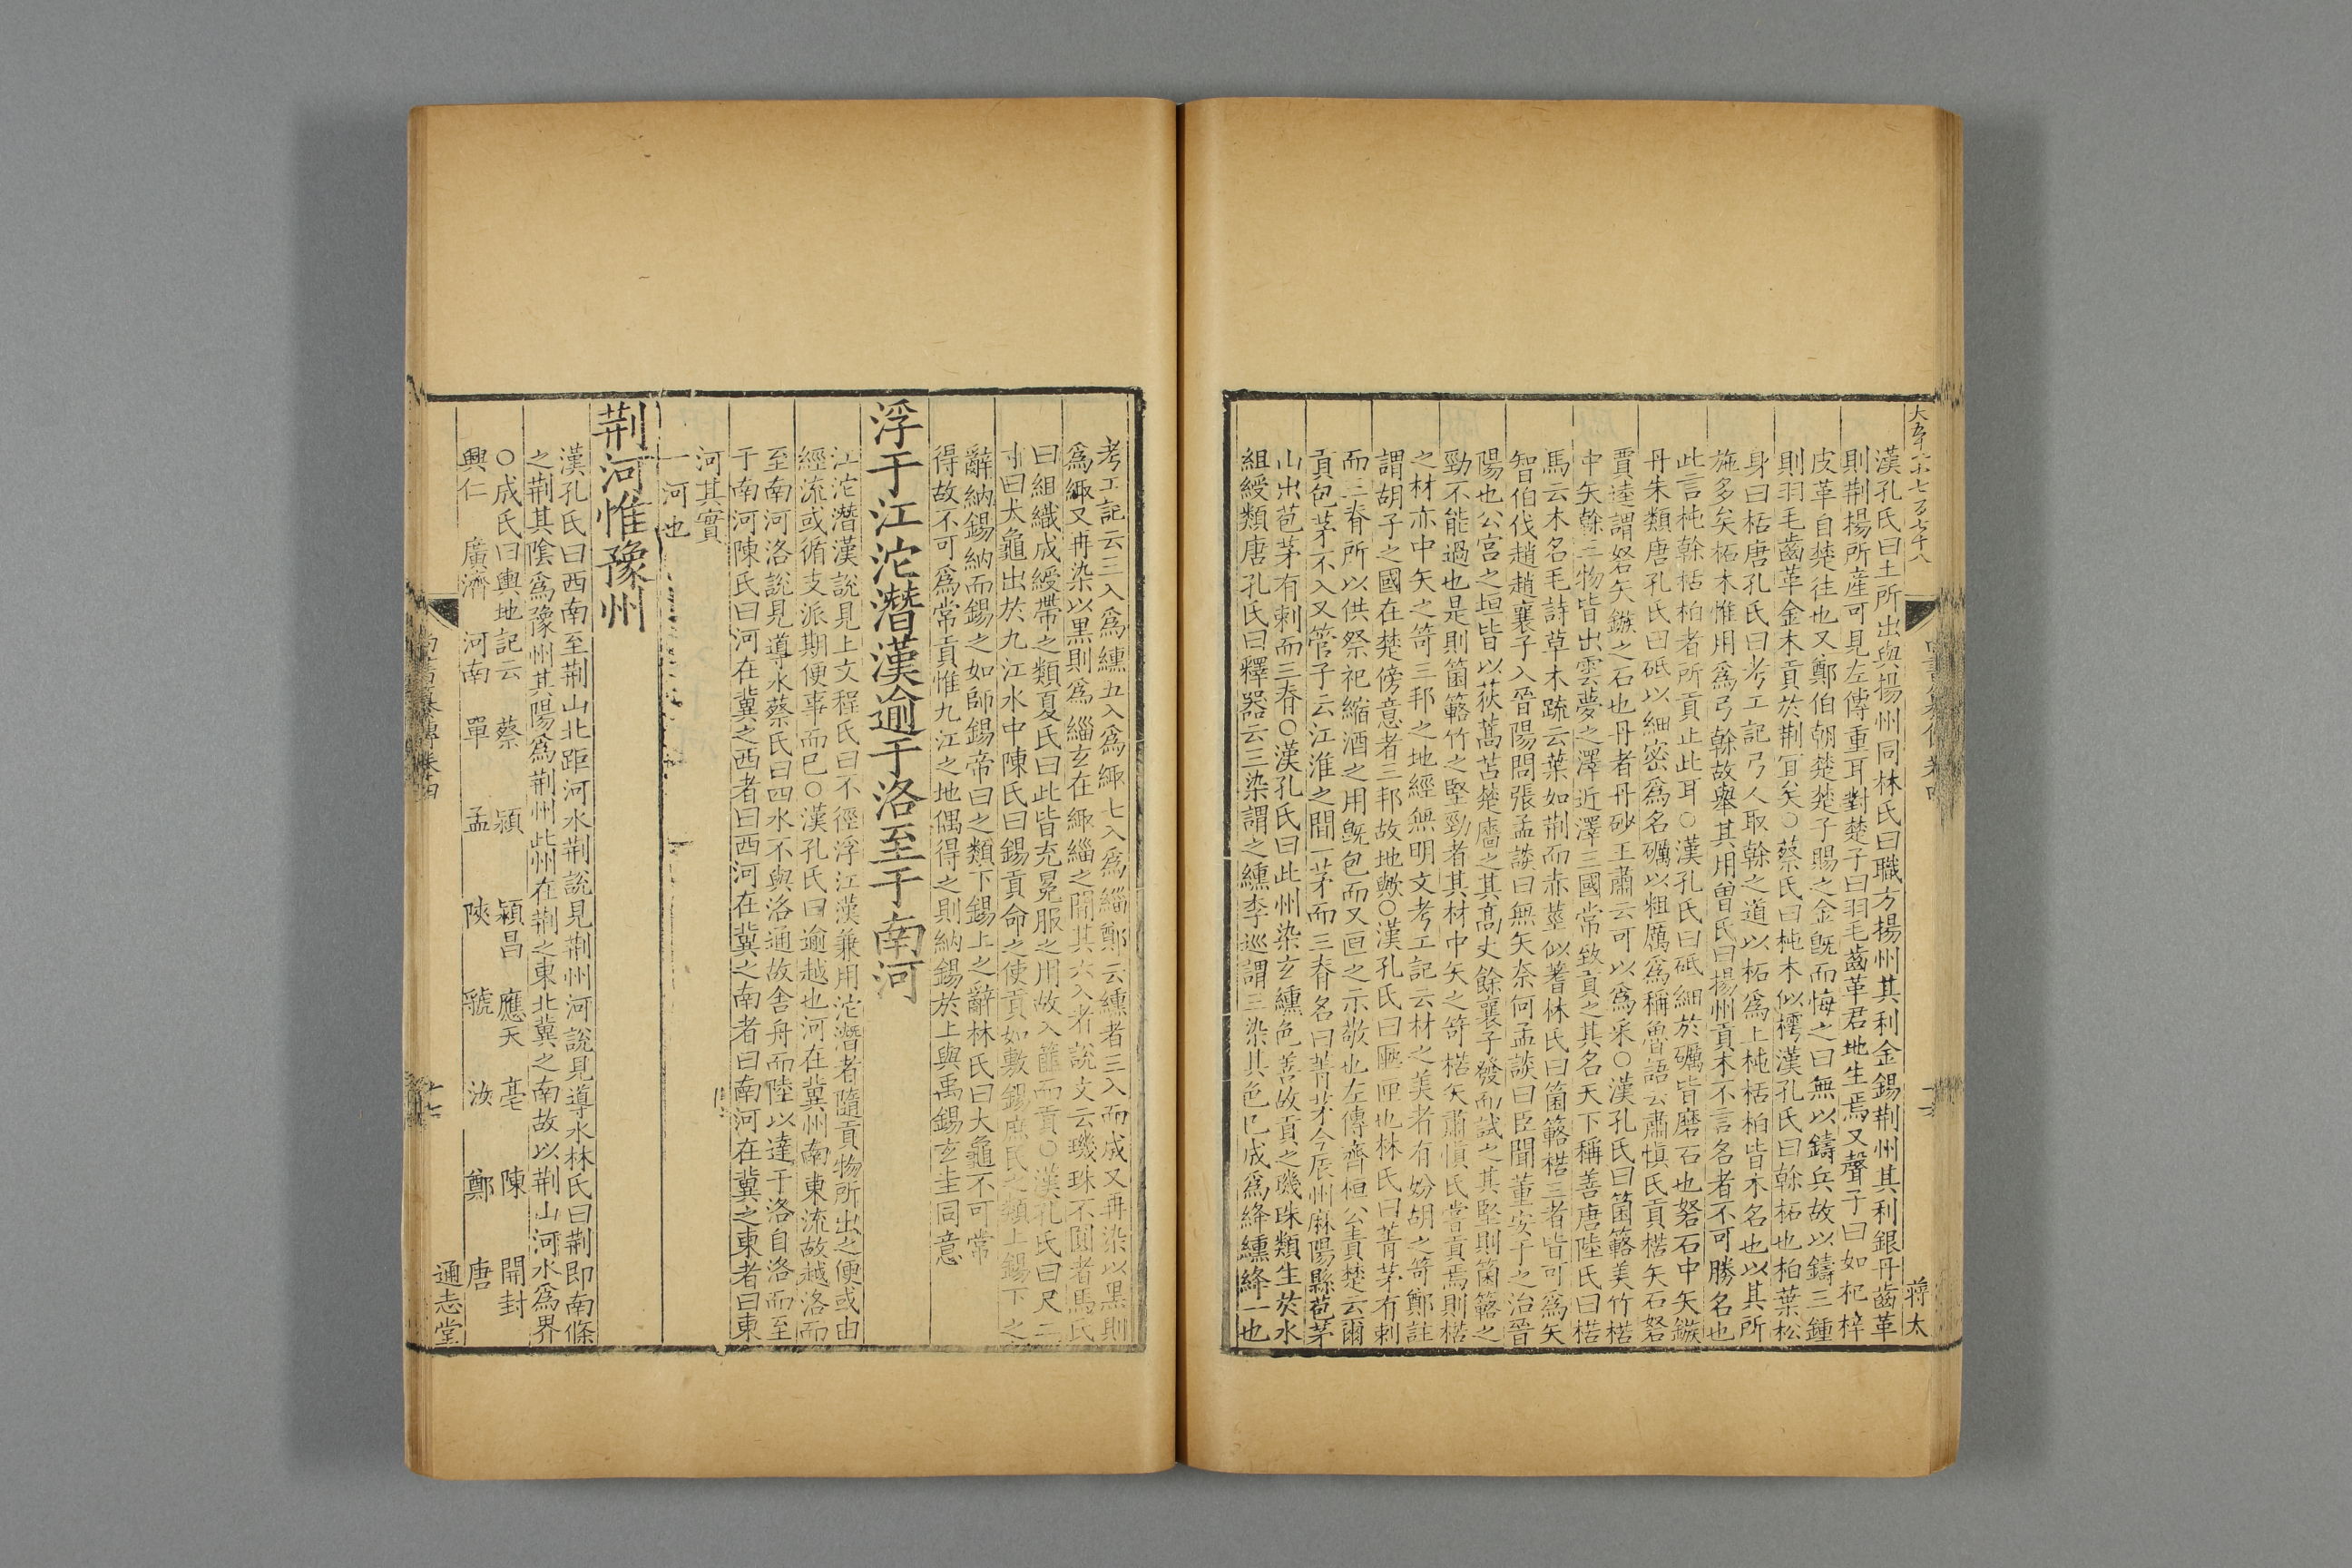 漢孔氏曰土所出與揚州同林氏曰職方揚州其利金錫荆州其利銀丹齒革
則荆揚所産可見左傳重耳對楚子曰羽毛齒革君地生焉又聲子曰如杞梓
皮革自楚往也又鄭伯朝楚楚子賜之金旣而悔之曰無以鑄兵故以鑄三鍾
則羽毛齒革金木貢於荆宜矣○蔡氏曰杶木似樗漢孔氏曰榦柘也柏葉松
身曰栝唐孔氏曰考工記弓人取榦之道以柘爲上杶栝柏皆木名也以其所
施多矣柘木惟用爲弓榦故舉其用曽氏曰揚州貢木不言名者不可勝名也
此言杶榦栝柏者所貢止此耳○漢孔氏曰砥細於礪皆磨石也砮石中矢鏃
丹朱類唐孔氏曰砥以細密爲名礪以粗厲爲稱魯語云肅愼氏貢楛矢石砮
賈逵謂砮矢鏃之石也丹者丹砂王肅云可以爲采○漢孔氏曰箘簵美竹楛
中矢榦三物皆出雲夢之澤近澤三國常致貢之其名天下稱善唐陸氏曰楛
馬云木名毛詩草木疏云葉如荆而赤莖似蓍林氏曰箘簵楛三者皆可爲矢
智伯伐趙趙襄子入晉陽問張孟談曰無矢奈何孟談曰臣聞董安于之治晉
陽也公宮之垣皆以荻蒿苫楚廧之其高丈餘襄子發而試之其堅則箘簵之
勁不能過也是則箘簵竹之堅勁者其材中矢之笴楛矢肅愼氏嘗貢焉則楛
之材亦中矢之笴三邦之地經無明文考工記云材之美者有妢胡之笴鄭註
謂胡子之國在楚傍意者三邦故地歟○漢孔氏曰匭匣也林氏曰菁茅有刺
而三脊所以供祭祀縮酒之用旣包而又匭之示敬也左傳齊桓公責楚云爾
貢包茅不入又管子云江淮之間一茅而三脊名曰菁茅今辰州麻陽縣苞茅
山出苞茅有刺而三脊○漢孔氏曰此州染玄纁色善故貢之璣珠類生於水
組綬類唐孔氏曰釋器云三染謂之纁李巡謂三染其色已成爲絳纁絳一也
蔣太
考工記云三入爲纁五入爲緅七入爲緇鄭云纁者三入而成又再染以黑則
爲緅又再染以黑則爲緇玄在緅緇之間其六入者說文云璣珠不圓者馬氏
曰組織成綬帶之類夏氏曰此皆充冕服之用故入篚而貢○漢孔氏曰尺二
寸曰大龜出於九江水中陳氏曰錫貢命之使貢如敷錫庶民之類上錫下之
辭納錫納而錫之如師錫帝曰之類下錫上之辭林氏曰大龜不可常
得故不可爲常貢惟九江之地偶得之則納錫於上與禹錫玄圭同意
浮于江沱潛漢逾于洛至于南河
江沱潛漢說見上文程氏曰不徑浮江漢兼用沱潛者隨貢物所出之便或由
經流或循支派期便事而已○漢孔氏曰逾越也河在冀州南東流故越洛而
至南河洛說見導水蔡氏曰四水不與洛通故舍舟而陸以達于洛自洛而至
于南河陳氏曰河在冀之西者曰西河在冀之南者曰南河在冀之東者曰東
河其實
一河也
荆河惟豫州
漢孔氏曰西南至荆山北距河水荆說見荆州河說見導水林氏曰荆即南條
之荆其陰爲豫州其陽爲荆州此州在荆之東北冀之南故以荆山河水爲界
○成氏曰輿地記云 蔡 潁 潁昌 應天 亳 陳 開封
興仁 廣濟 河南 單 孟 陝 虢 汝 鄭 唐
通志堂